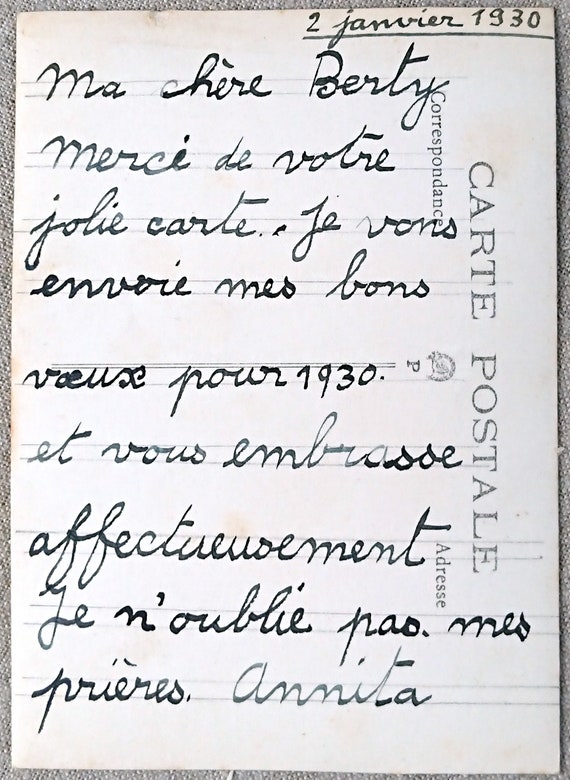 2 janvier 1930
Ma chère Berty
Merci de votre
jolie carte.. Je vous
envoie mes bons
vœux pour 1930.
et vous embrasse
affectueusement
Je n'oublie pas. mes
prières. Annita
CARTE POSTALE
Correspondance
P
Adresse